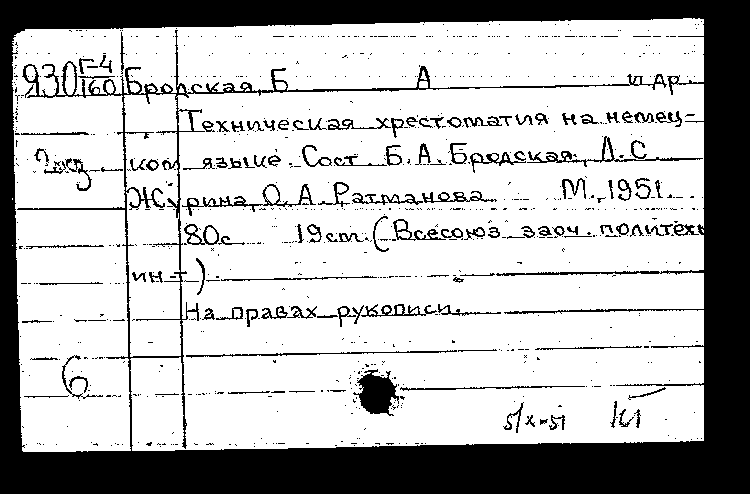 Я30 Г-4/160 Бродская, Б А и др.
Техническая хрестоматия на немец-
2экз. ком языке. Сост. Б.А. Бродская, Л.С.
Журина, О.А. Ратманова М., 1951.
80с 19cm. (Всесоюз заоч. политехн
ин-т).
На правах рукописи.
6
5/X-51